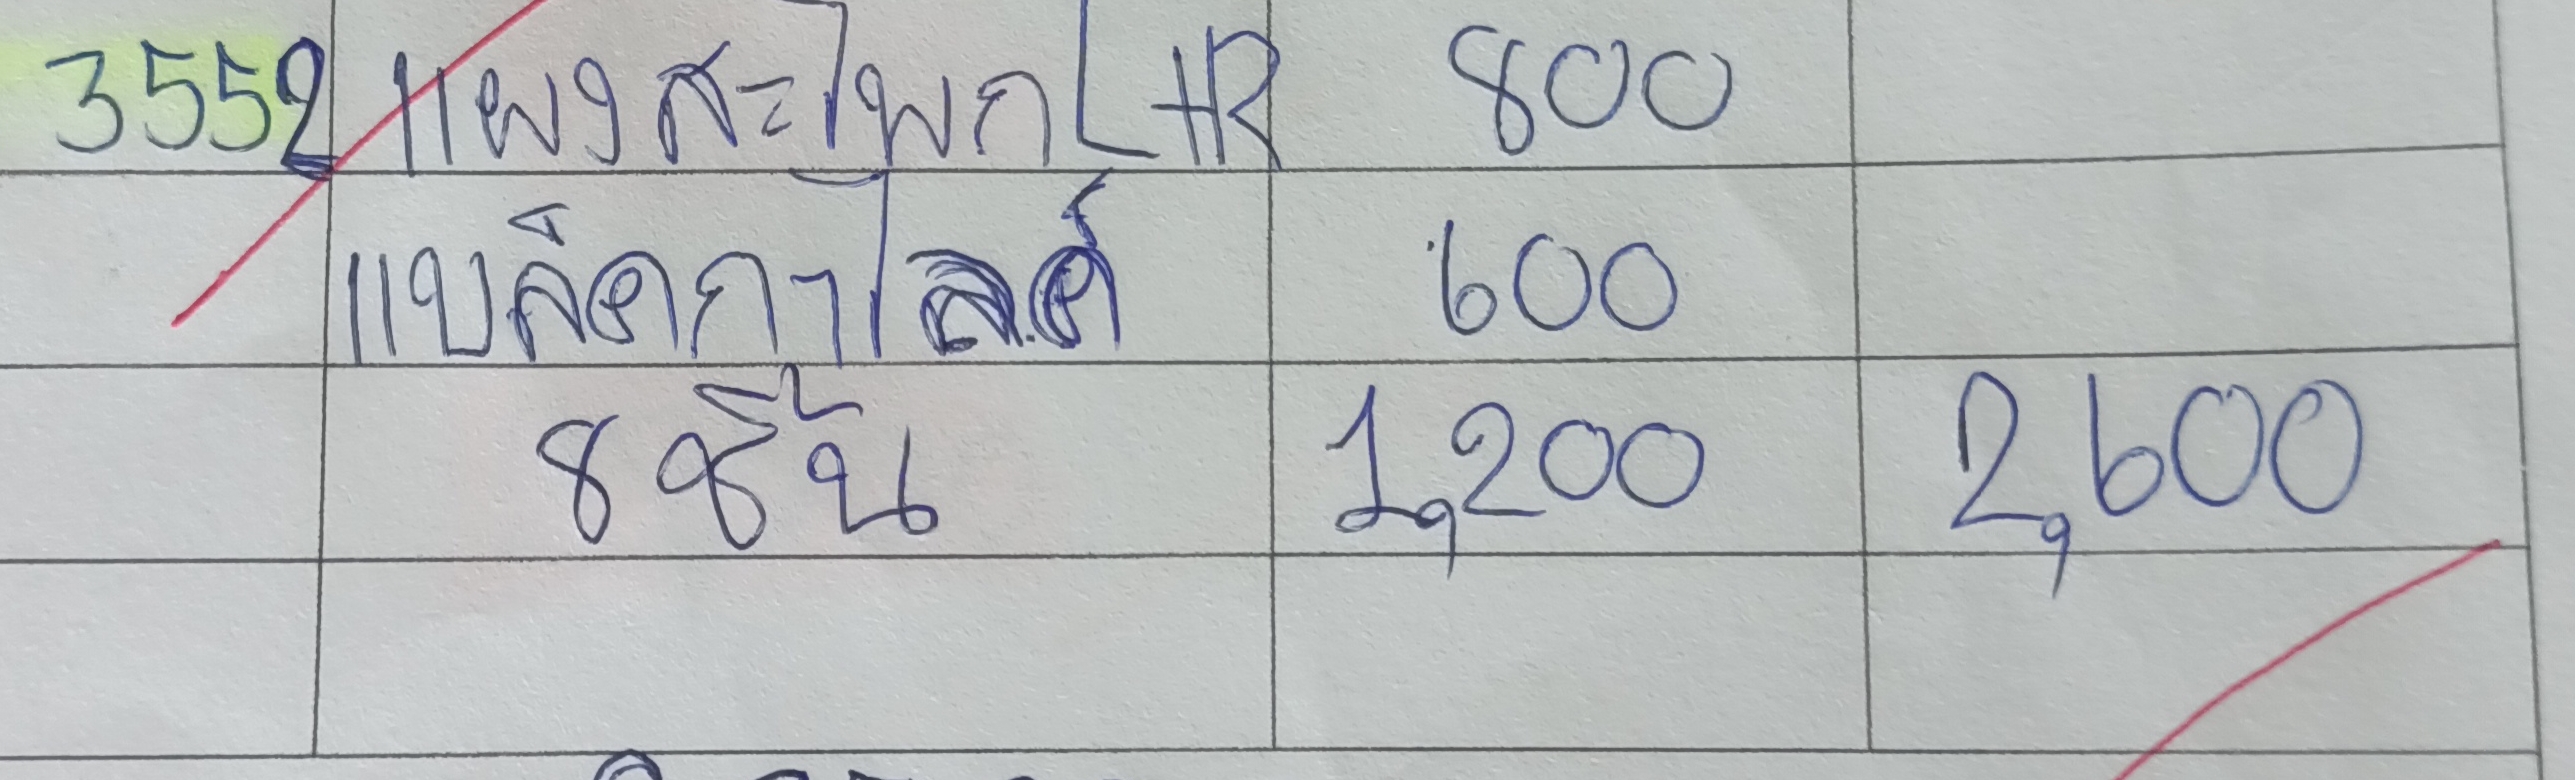 3552 แผงสะโพก L+R 800
แบล็คกาไลต์ 600
8 ชิ้น 1,200 2,600